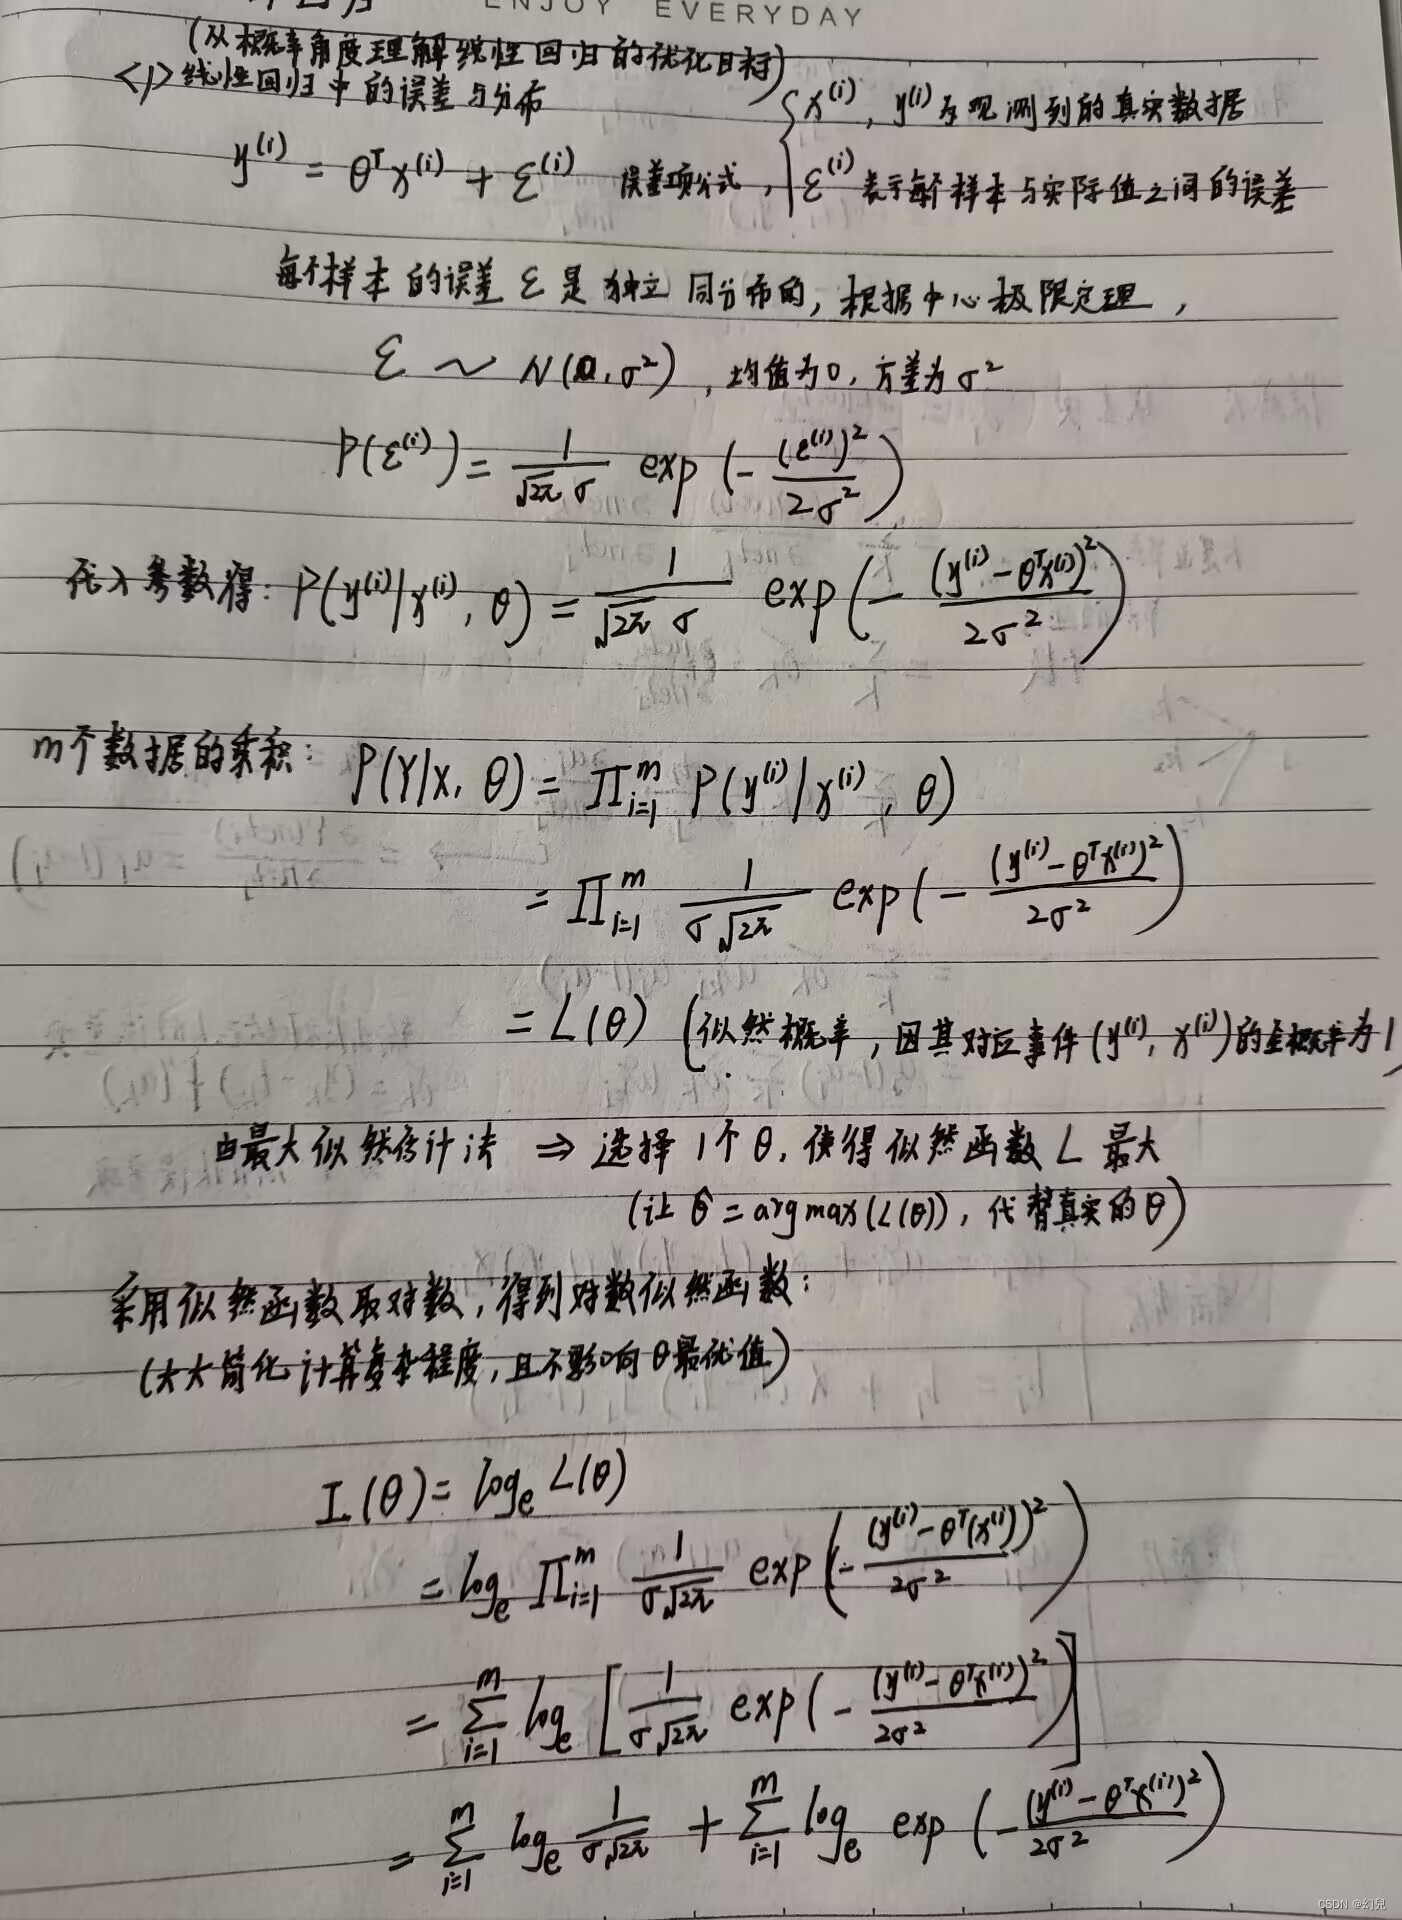 ENJOY EVERYDAY
(从概率角度理解线性回归的优化目标)
<1>线性回归中的误差与分布
y⁽ⁱ⁾ = θᵀx⁽ⁱ⁾ + ε⁽ⁱ⁾ 误差项公式, { x⁽ⁱ⁾, y⁽ⁱ⁾为观测到的真实数据
ε⁽ⁱ⁾表示每个样本与实际值之间的误差
每个样本的误差 ε 是独立同分布的, 根据中心极限定理,
ε ~ N(0, σ²), 均值为0, 方差为σ²
P(ε⁽ⁱ⁾) = 1/(√2π σ) exp(-(ε⁽ⁱ⁾)²/2σ²)
代入参数得: P(y⁽ⁱ⁾|x⁽ⁱ⁾, θ) = 1/(√2π σ) exp(-(y⁽ⁱ⁾-θᵀx⁽ⁱ⁾)²/2σ²)
m个数据的乘积: P(Y|X, θ) = ∏ᵢ₌₁ᵐ P(y⁽ⁱ⁾|x⁽ⁱ⁾, θ)
= ∏ᵢ₌₁ᵐ 1/(σ√2π) exp(-(y⁽ⁱ⁾-θᵀx⁽ⁱ⁾)²/2σ²)
= L(θ) (似然概率, 因其对应事件(y⁽ⁱ⁾, x⁽ⁱ⁾)的全概率为1)
由最大似然估计法 ⇒ 选择1个θ, 使得似然函数L最大
(让 θ̂ = argmax(L(θ)), 代替真实的θ)
采用似然函数取对数, 得到对数似然函数:
(大大简化计算复杂程度, 且不影响θ最优值)
I(θ) = logₑ L(θ)
= logₑ ∏ᵢ₌₁ᵐ 1/(σ√2π) exp(-(y⁽ⁱ⁾-θᵀ(x⁽ⁱ⁾))²/2σ²)
= ∑ᵢ₌₁ᵐ logₑ [1/(σ√2π) exp(-(y⁽ⁱ⁾-θᵀx⁽ⁱ⁾)²/2σ²)]
= ∑ᵢ₌₁ᵐ logₑ 1/(σ√2π) + ∑ᵢ₌₁ᵐ logₑ exp(-(y⁽ⁱ⁾-θᵀx⁽ⁱ⁾)²/2σ²)
CSDN @幻兒